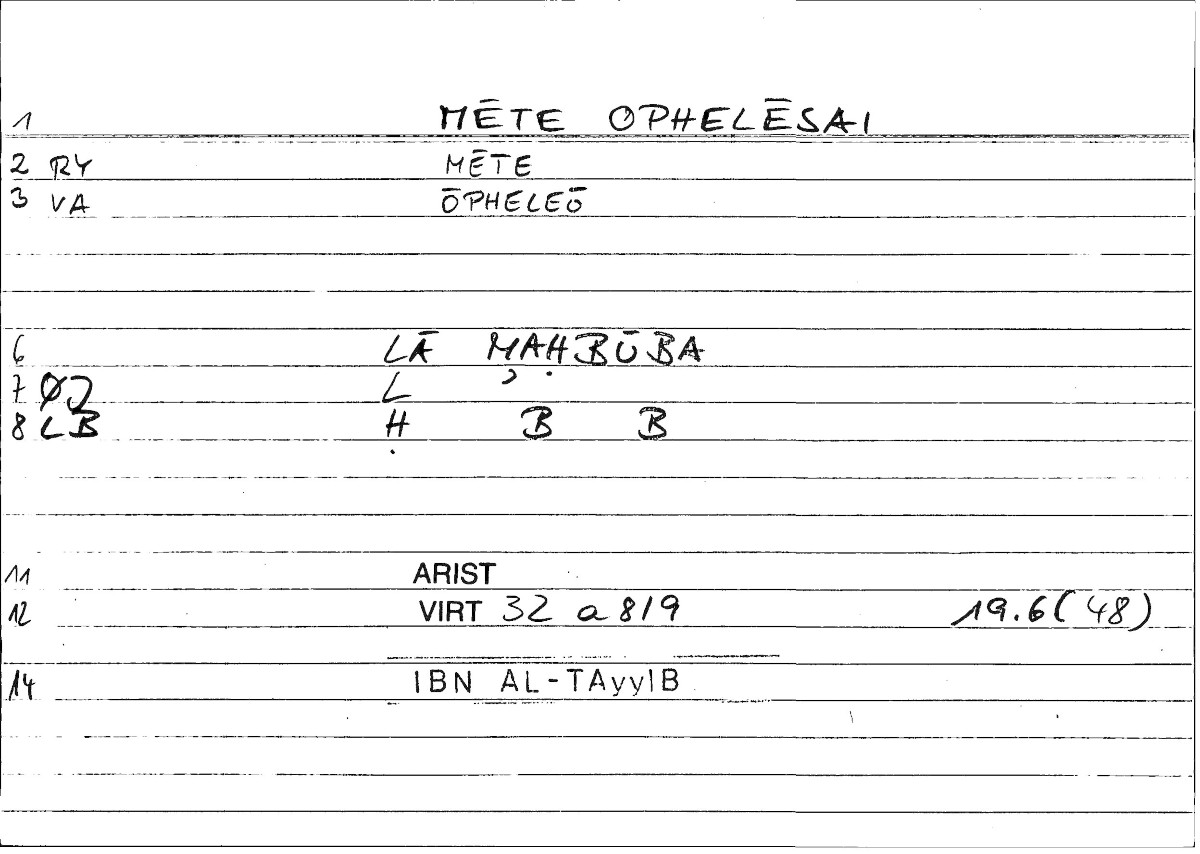 1 MĒTE OPHELĒSAI
2 RY MĒTE
3 VA ŌPHELEŌ
6 LĀ MAḤBŪBA
7 ØJ L ʾ
8 LB Ḥ B B
11 ARIST
12 VIRT 32 a 8/9 19.6(48)
14 IBN AL-TAyyIB